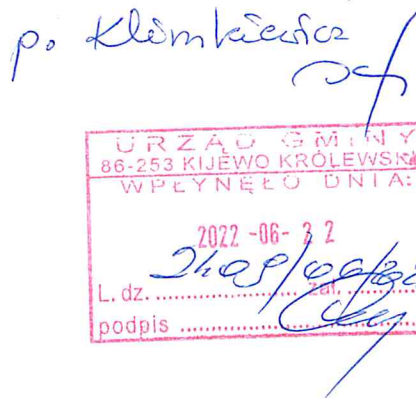 p. Klimkiewicz
URZĄD GMINY
86-253 KIJEWO KRÓLEWSKI
WPŁYNĘŁO DNIA:
2022 -06- 22
L. dz. .................... zał. ..........
podpis ..............................